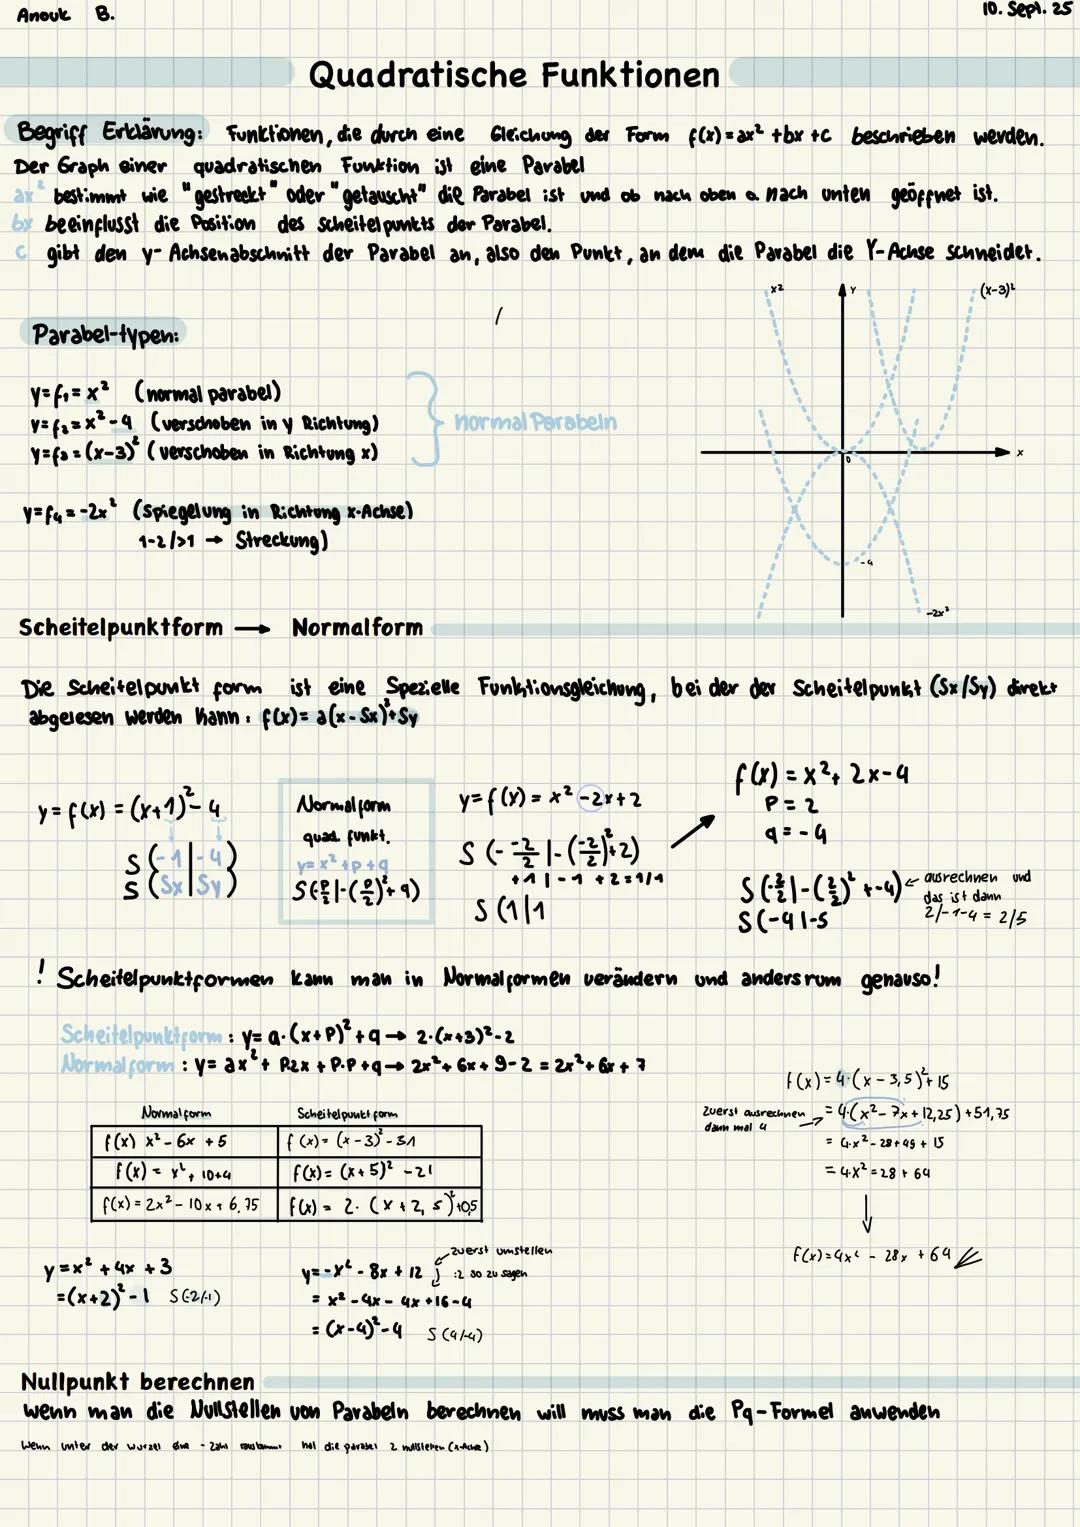 Anouk B.
10. Sept. 25
Quadratische Funktionen
Begriff Erklärung: Funktionen, die durch eine Gleichung der Form f(x)=ax² +bx +c beschrieben werden.
Der Graph einer quadratischen Funktion ist eine Parabel
ax² bestimmt wie "gestreckt" oder "getauscht" die Parabel ist und ob nach oben o. nach unten geöffnet ist.
bx beeinflusst die Position des Scheitelpunkts der Parabel.
c gibt den y-Achsenabschnitt der Parabel an, also den Punkt, an dem die Parabel die Y-Achse schneidet.
x2
Y
(x-3)²
Parabel-typen:
y=f₁= x² (normal parabel)
y=f₂=x²-4 (verschoben in y Richtung)
y=f₃=(x-3)² (verschoben in Richtung x)
normal Parabeln
x
0
y=f₄=-2x² (Spiegelung in Richtung x-Achse)
1-2/>1 → Streckung)
-4
-2x²
Scheitelpunktform → Normalform
Die Scheitelpunkt form ist eine Spezielle Funktionsgleichung, bei der der Scheitelpunkt (Sx/Sy) direkt
abgelesen werden kann: f(x)= a(x-Sx)²+Sy
y=f(x) = (x+1)²-4
S (-1|-4)
S (Sx|Sy)
Normalform
quad. funkt.
y=x²+p+q
S(-p/2|-(p/2)²+q)
y=f(x)= x²-2x+2
S(--2/2|-(-2/2)²+2)
+1|-1 +2=1/1
S (1|1
f(x) = x²+ 2x-4
P = 2
q = -4
S(-2/2|-(2/2)²+-4)
S(-4|-5
← ausrechnen und
das ist dann
2/-1-4 = 2/5
! Scheitelpunktformen kann man in Normalformen verändern und andersrum genauso!
Scheitelpunktform: y= a·(x+P)²+q → 2·(x+3)²-2
Normalform: y= ax²+ P2x + P·P+q → 2x²+ 6x + 9-2 = 2x²+6x+7
Normalform Scheitelpunkt form
f(x) x²-6x +5 f(x)= (x-3)²-31
f(x) = x²+ 10+4 f(x)= (x+5)² -21
f(x)=2x²-10x+6,75 f(x)= 2·(x+2,5)²+0,5
f(x)= 4·(x-3,5)²+15
zuerst ausrechnen
dann mal 4
= 4·(x²-7x+12,25)+51,75
= 4·x²-28+49+15
= 4x²=28+64
↓
f(x)=4x²-28x+64
y=x²+4x+3
=(x+2)²-1 S(-2/-1)
y=-x²-8x+12
zuerst umstellen
:2 so zu sagen
= x²-4x-4x+16-4
= (x-4)²-4 S(4/-4)
Nullpunkt berechnen
Wenn man die Nullstellen von Parabeln berechnen will muss man die Pq-Formel anwenden
Wenn unter der wurzel eine - Zahl rauskommt hat die parabel 2 nullstellen (x-Achse)